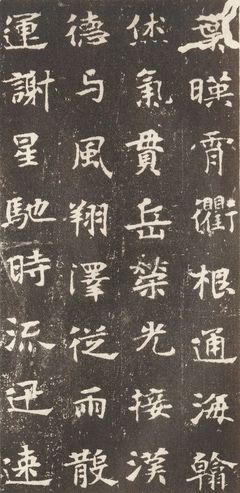 葉暎霄衢根通海翰
烋氣貫岳榮光接漢
德与風翔澤從雨散
運謝星馳時流迅速